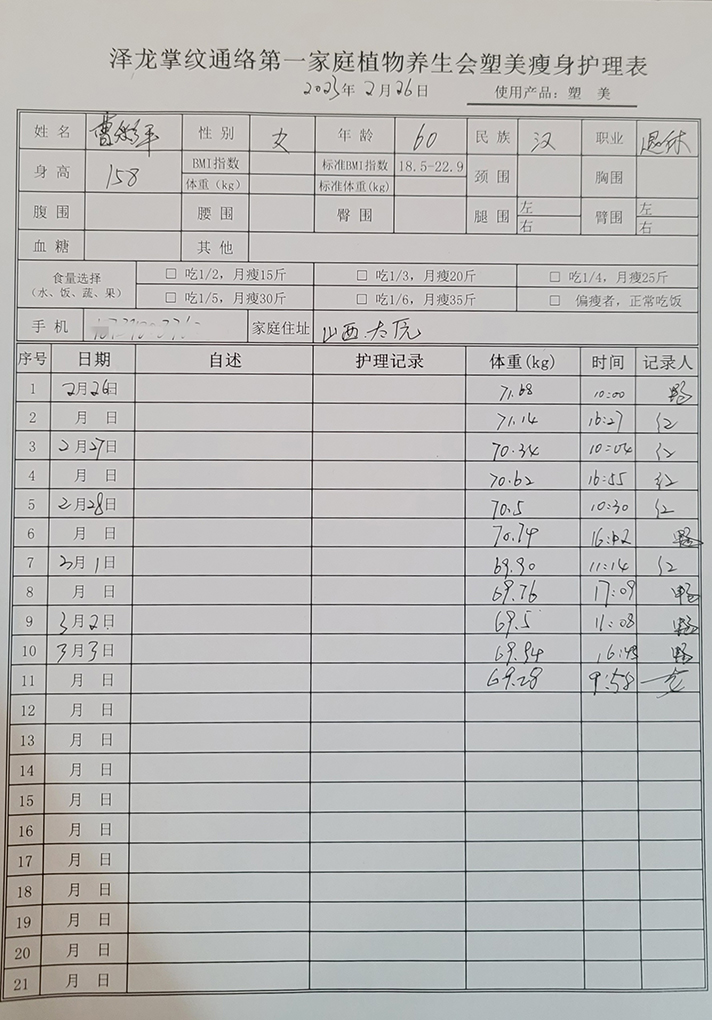 泽龙掌纹通络第一家庭植物养生会塑美瘦身护理表
2023年2月26日 使用产品：塑 美
姓 名 曹 性 别 女 年 龄 60 民 族 汉 职业 退休
身 高 158 BMI指数 标准BMI指数 18.5-22.9 颈 围 胸围
体重（kg） 标准体重(kg)
腹 围 腰 围 臀 围 腿 围 左 右 臂围 左 右
血 糖 其 他
食量选择 □ 吃1/2，月瘦15斤 □ 吃1/3，月瘦20斤 □ 吃1/4，月瘦25斤
（水、饭、蔬、果） □ 吃1/5，月瘦30斤 □ 吃1/6，月瘦35斤 □ 偏瘦者，正常吃饭
手 机 家庭住址 山西.太原
序号 日期 自述 护理记录 体重(kg) 时间 记录人
1 2月26日 71.68 10:00
2 月 日 71.14 16:27 红
3 2月27日 70.34 10:04 红
4 月 日 70.62 16:55 红
5 2月28日 70.5 10:30 红
6 月 日 70.74 16:02
7 3月1日 69.90 11:14 红
8 月 日 69.76 17:09
9 3月2日 69.5 11:08
10 3月3日 69.94 16:43
11 月 日 69.28 9:58
12 月 日
13 月 日
14 月 日
15 月 日
16 月 日
17 月 日
18 月 日
19 月 日
20 月 日
21 月 日